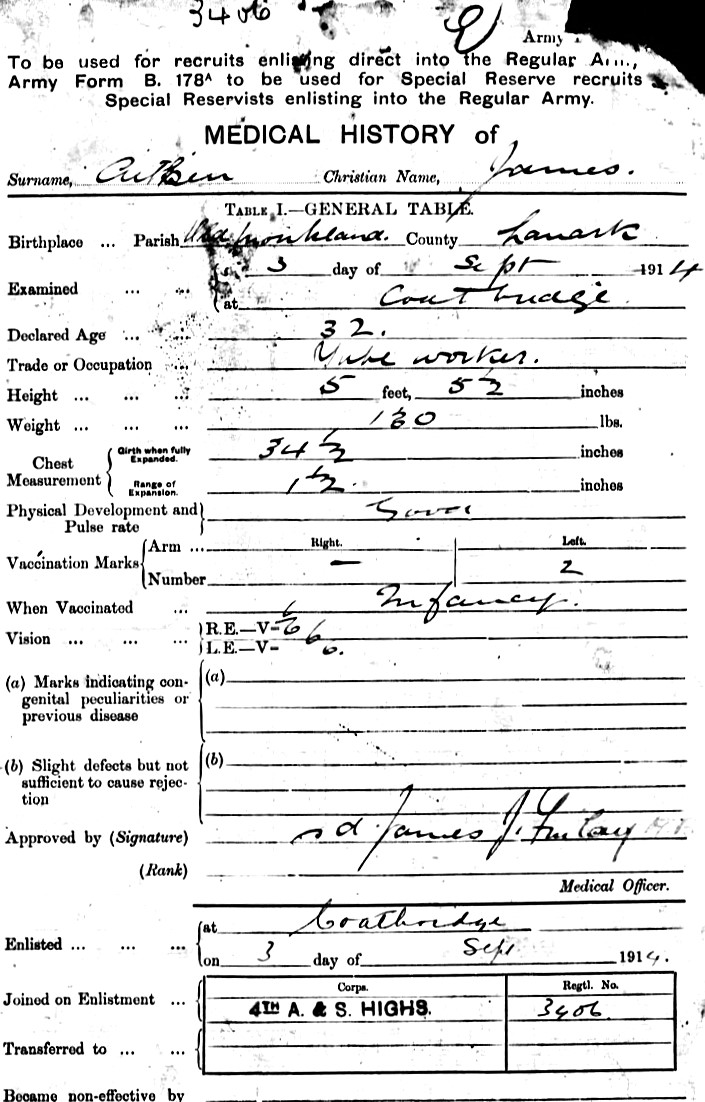 3406
Army
To be used for recruits enlisting direct into the Regular
Army Form B. 178A to be used for Special Reserve recruits
Special Reservists enlisting into the Regular Army.
MEDICAL HISTORY of
Surname, Aitken Christian Name, James.
TABLE I.—GENERAL TABLE.
Birthplace ... Parish Old Monkland. County Lanark
3 day of Sept 1914
Examined ... ...
at Coatbridge
Declared Age ... ... 32.
Trade or Occupation ... Tube worker.
Height ... ... ... 5 feet, 5½ inches
Weight ... ... ... lbs.
Chest Measurement
Girth when fully Expanded. 34½ inches
Range of Expansion. 1½ inches
Physical Development and Pulse rate Good
Right. Left.
Vaccination Marks Arm ... — 2
Number
When Vaccinated ... Infancy.
Vision ... ... ... R.E.—V= 6/6
L.E.—V= 6/6.
(a) Marks indicating con- (a)
genital peculiarities or
previous disease
(b) Slight defects but not (b)
sufficient to cause rejec-
tion
Approved by (Signature) sd James J. Finlay
(Rank)
Medical Officer.
at Coatbridge
Enlisted ... ... ...
on 3 day of Sept 1914.
Corps. Regtl. No.
Joined on Enlistment ... 4TH A. & S. HIGHS. 3406
Transferred to ... ...
Became non-effective by